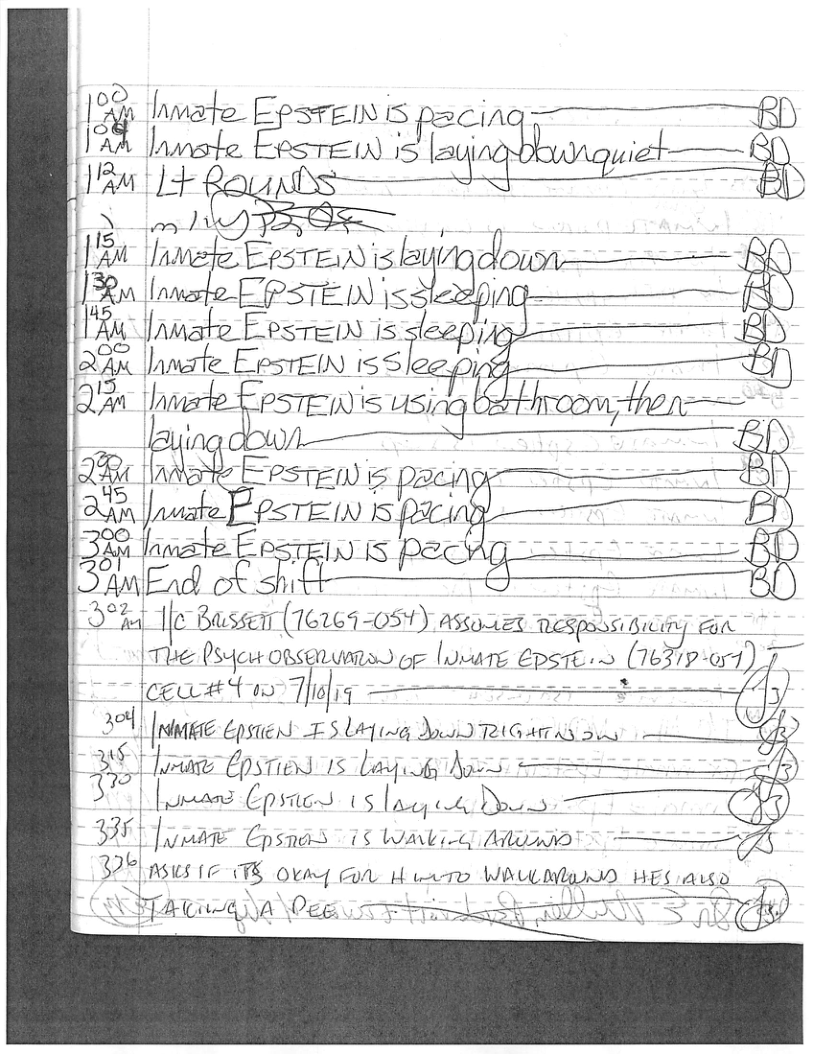 1 00 AM Inmate EPSTEIN is pacing BD
1 09 AM Inmate EPSTEIN is laying down quiet BD
1 12 AM Lt ROUNDS BD
1 15 AM Inmate EPSTEIN is laying down BD
1 30 AM Inmate EPSTEIN is sleeping BD
1 45 AM Inmate EPSTEIN is sleeping BD
2 00 AM Inmate EPSTEIN is sleeping BD
2 15 AM Inmate EPSTEIN is using bathroom, then
laying down BD
2 30 AM Inmate EPSTEIN is pacing BD
2 45 AM Inmate EPSTEIN is pacing BD
3 00 AM Inmate EPSTEIN is pacing BD
3 01 AM End of shift BD
3 02 AM I/C BRISSETT (76269-054) ASSUMES RESPONSIBILITY FOR
THE PSYCH OBSERVATION OF INMATE EPSTEIN (76318-054)
CELL #4 ON 7/10/19
304 INMATE EPSTIEN IS LAYING DOWN RIGHT NOW
315 INMATE EPSTIEN IS LAYING DOWN
330 INMATE EPSTIEN IS LAYING DOWN
335 INMATE EPSTIEN IS WALKING AROUND
336 ASKS IF ITS OKAY FOR HIM TO WALK AROUND HES ALSO
TAKING A PEE